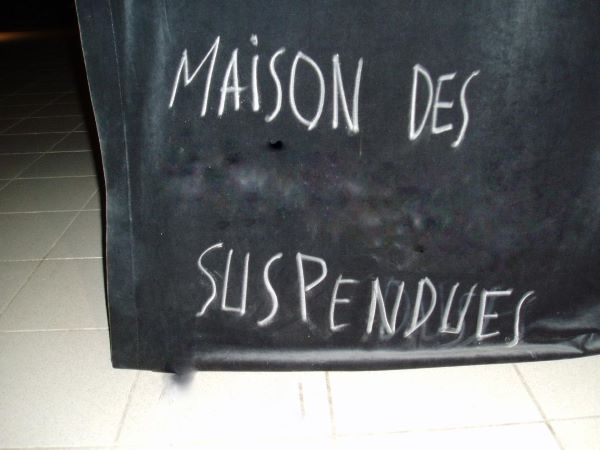 MAiSON DES
SUSPENDUES